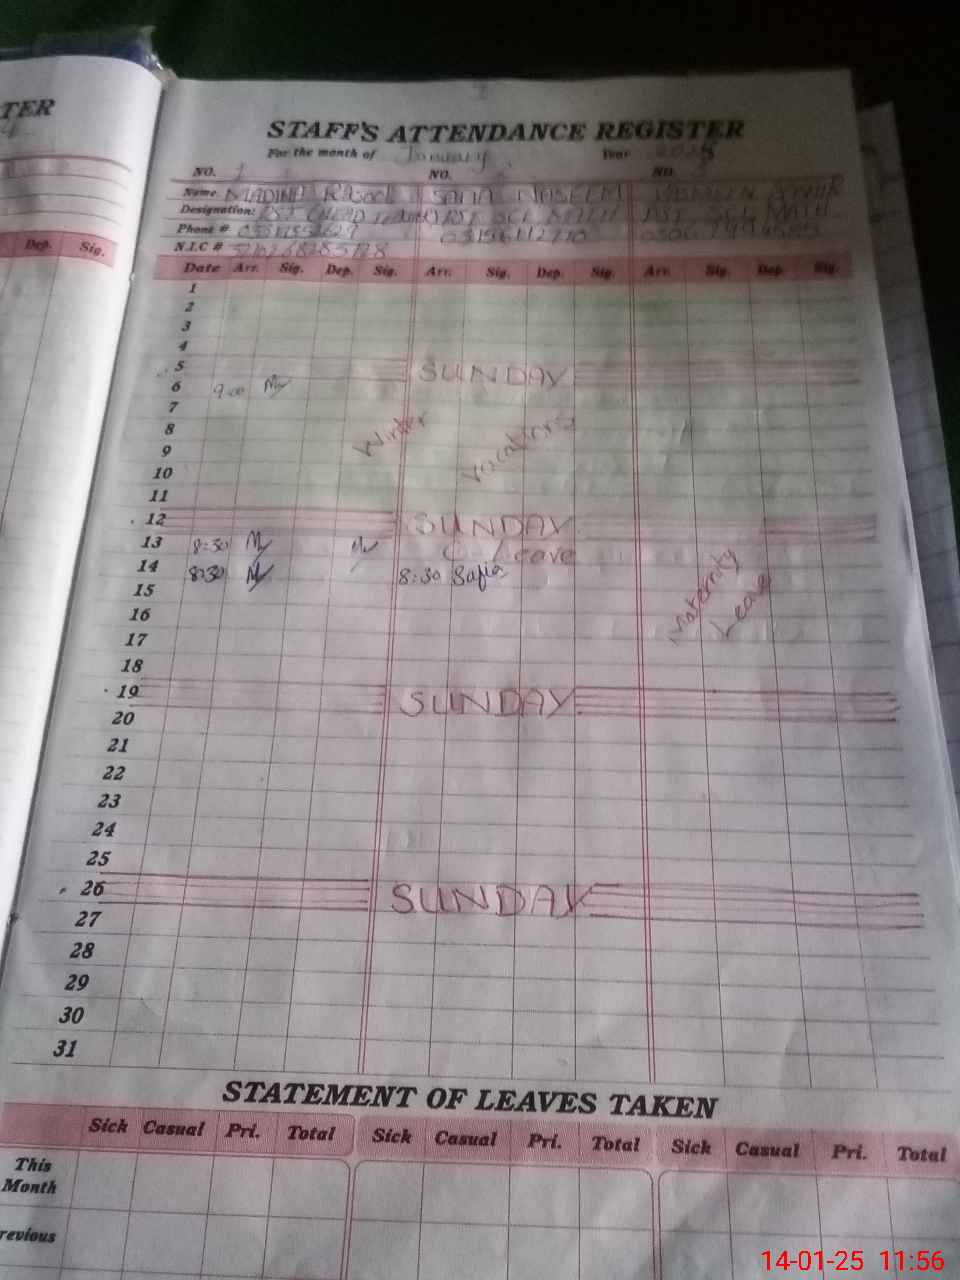 TER
STAFF'S ATTENDANCE REGISTER
For the month of January Year 2025
NO. 1 NO. NO.
Name MADINA Rasool SANA NASEEM
Designation: PST (HEAD PST SCI MATH PST SCI MATH
Phone # 03156112710
N.I.C #
Dep. Sig.
Date Arr. Sig. Dep. Sig. Arr. Sig. Dep. Sig. Arr. Sig. Dep. Sig.
1
2
3
4
5 SUNDAY
6 9:00
7
8 Winter Vacations
9
10
11
12 SUNDAY
13 8:30 C. Leave
14 8:30 8:30 Safia
15 Maternity Leave
16
17
18
19 SUNDAY
20
21
22
23
24
25
26 SUNDAY
27
28
29
30
31
STATEMENT OF LEAVES TAKEN
Sick Casual Pri. Total Sick Casual Pri. Total Sick Casual Pri. Total
This
Month
revious
14-01-25 11:56